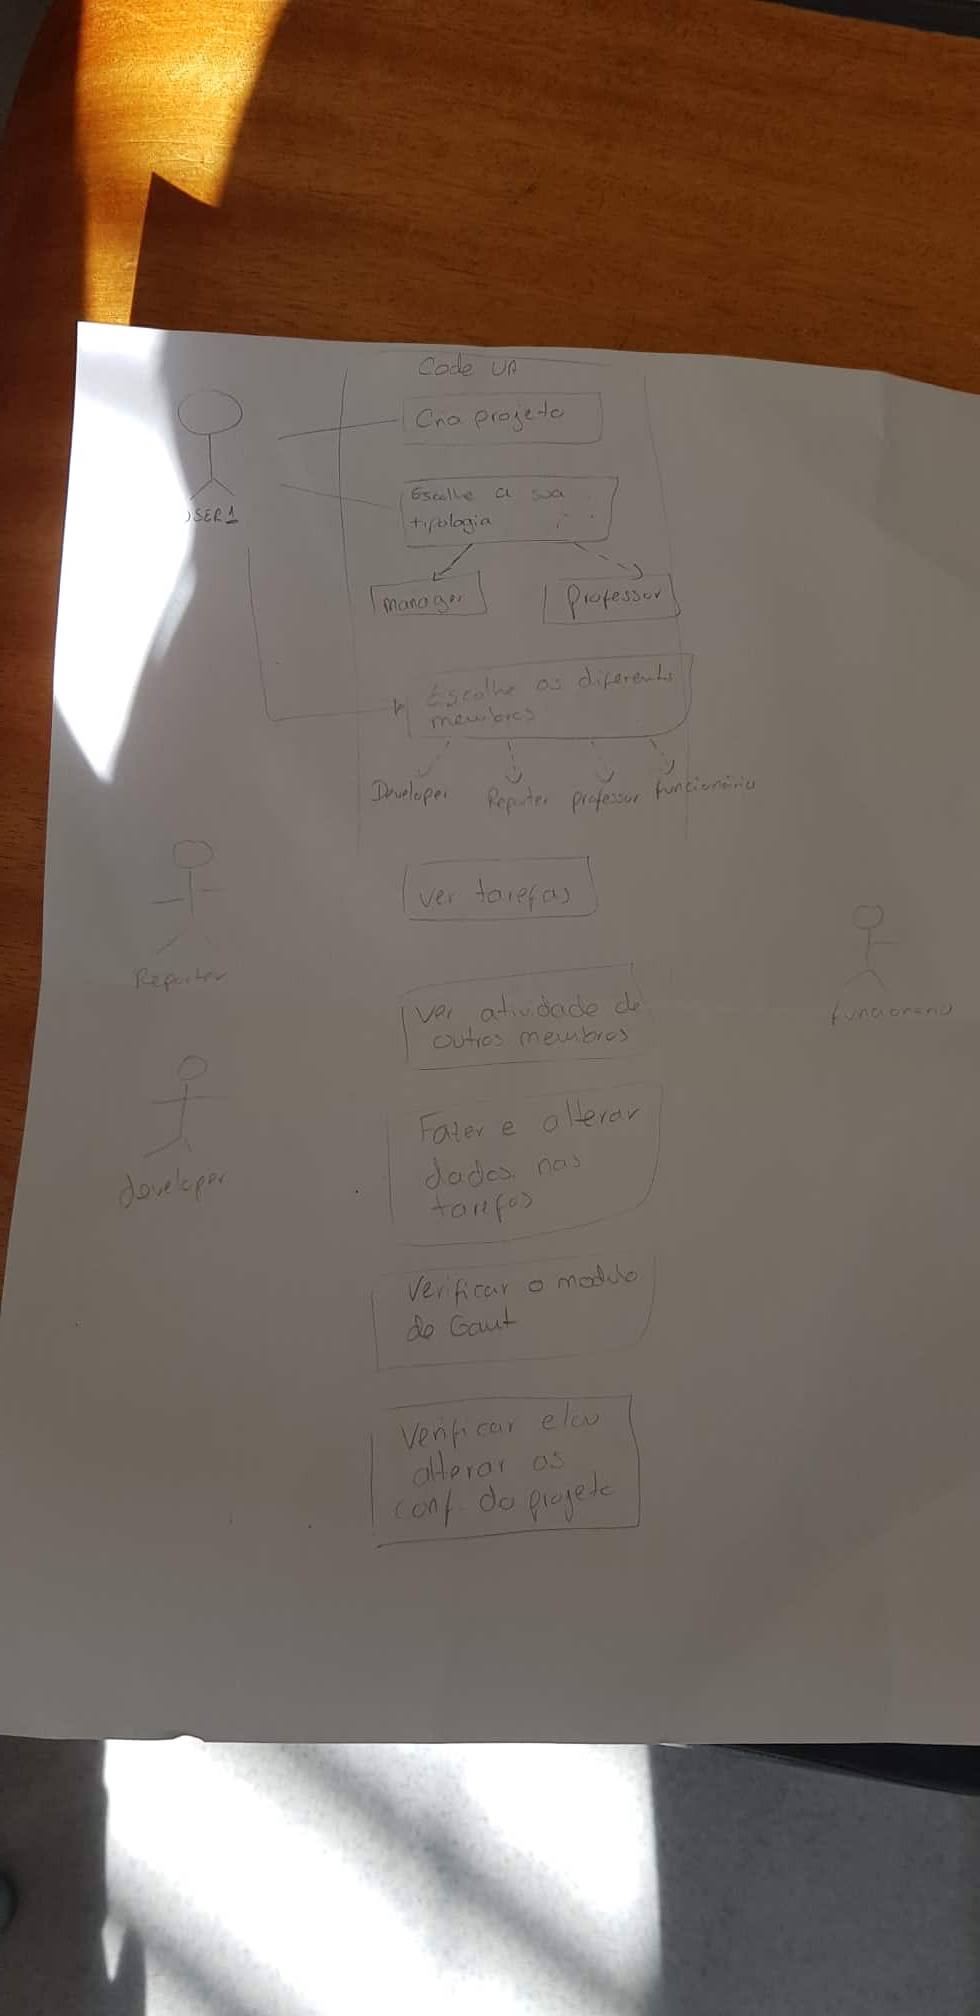 Code UA
Cria projeto
USER1
Escolhe a sua
tipologia
manager
Professor
Escolhe os diferentes
membros
Developer Reporter professor funcionário
ver tarefas
Reporter
Ver atividade de
outros membros
funcionario
Fazer e alterar
dados nas
tarefas
developer
Verificar o modulo
de Gant
Verificar e/ou
alterar as
conf. do projeto